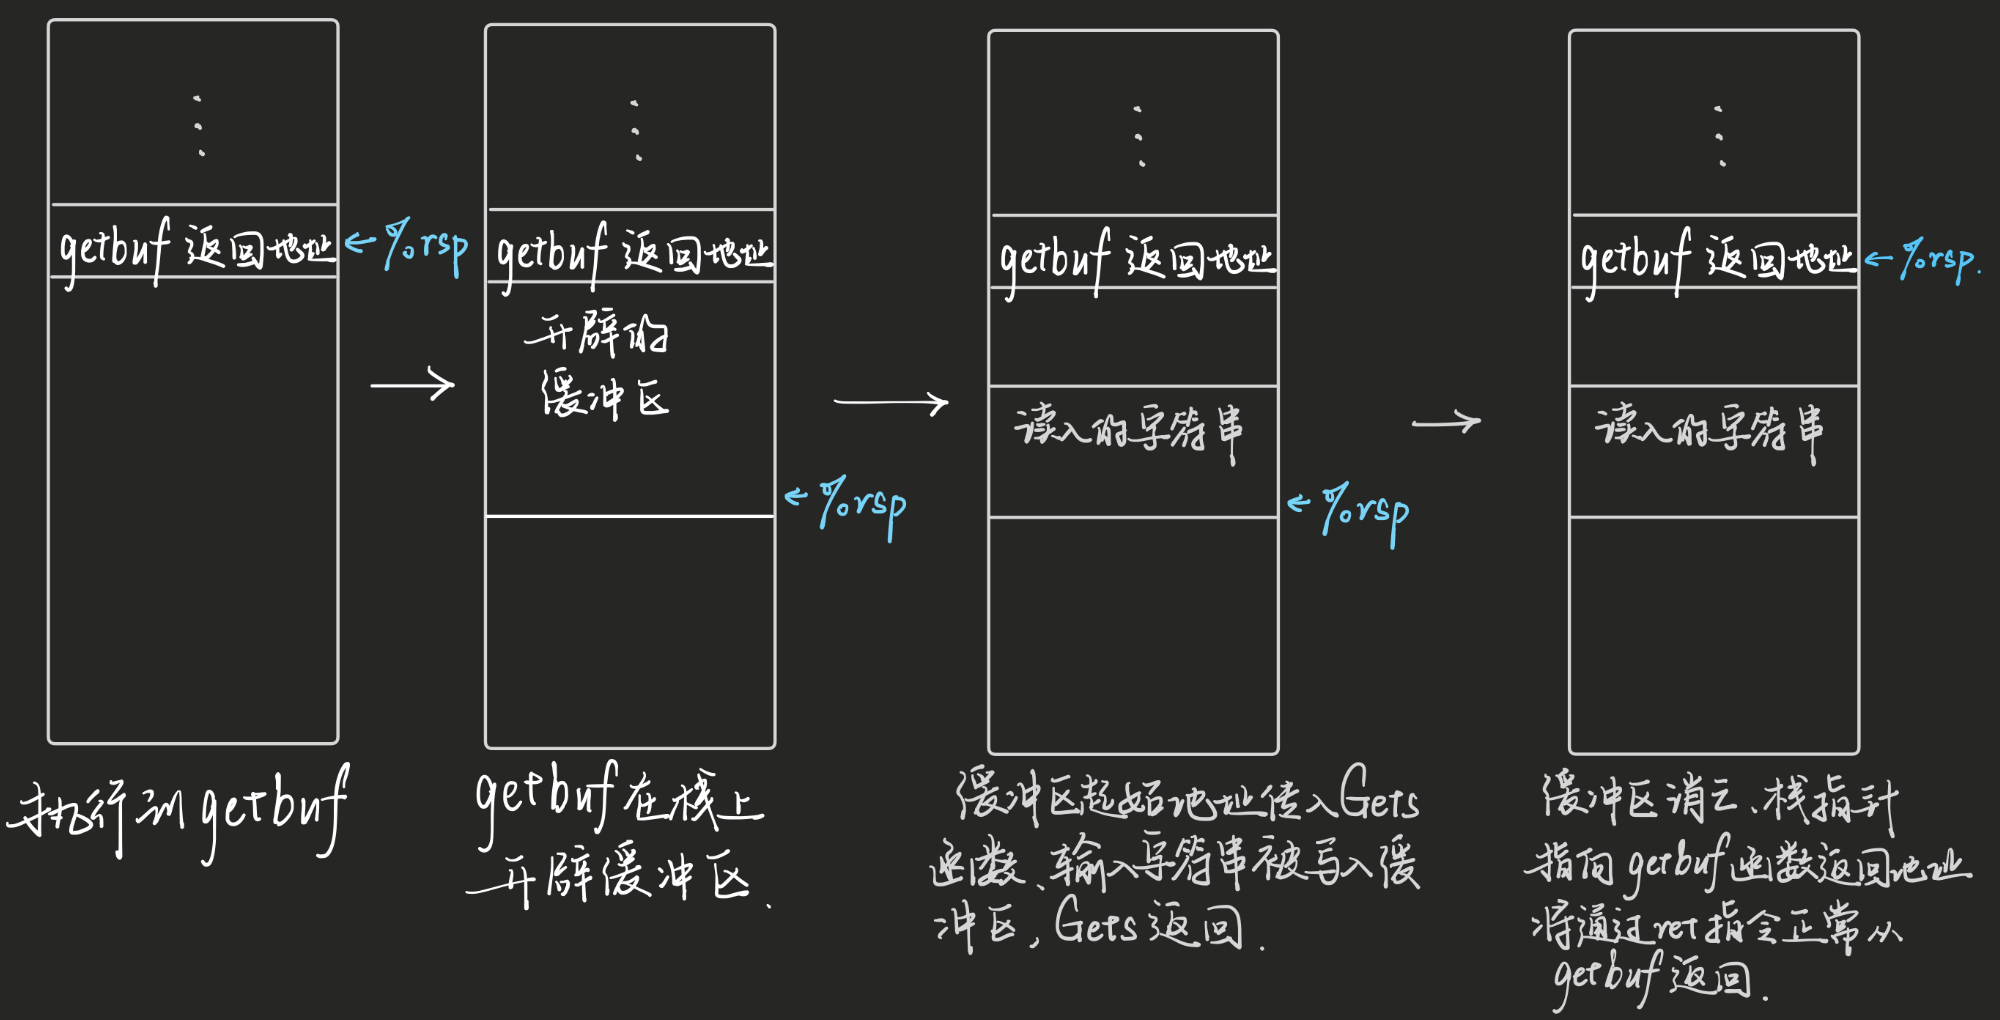 getbuf 返回地址
←%rsp
执行到getbuf
getbuf 返回地址
开辟的
缓冲区
←%rsp
getbuf在栈上
开辟缓冲区.
getbuf 返回地址
读入的字符串
←%rsp
缓冲区起始地址传入Gets
函数、输入字符串被写入缓
冲区, Gets返回.
getbuf 返回地址
←%rsp.
读入的字符串
缓冲区消亡、栈指针
指向getbuf函数返回地址
将通过ret指令正常从
getbuf返回.